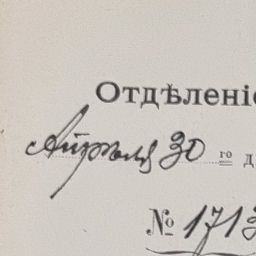 Отдѣленіе
Апрѣля 30 го д
№ 1713